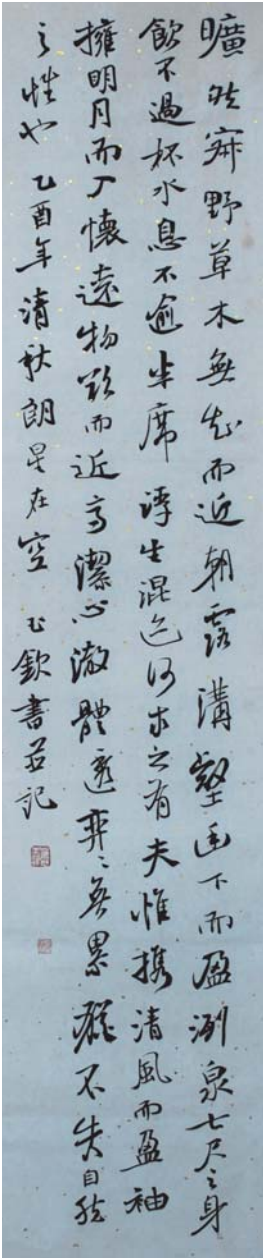 曠然寂野草木無知而近朝露溝壑下而盈洌泉七尺之身
飲不過杯水息不逾半席浮生混迹何求之有夫惟攜清風而盈袖
擁明月而入懷遠物欲而近高潔心澈體適弈々無累不失自然
之性也 乙酉年清秋朗星在空 欽書並記